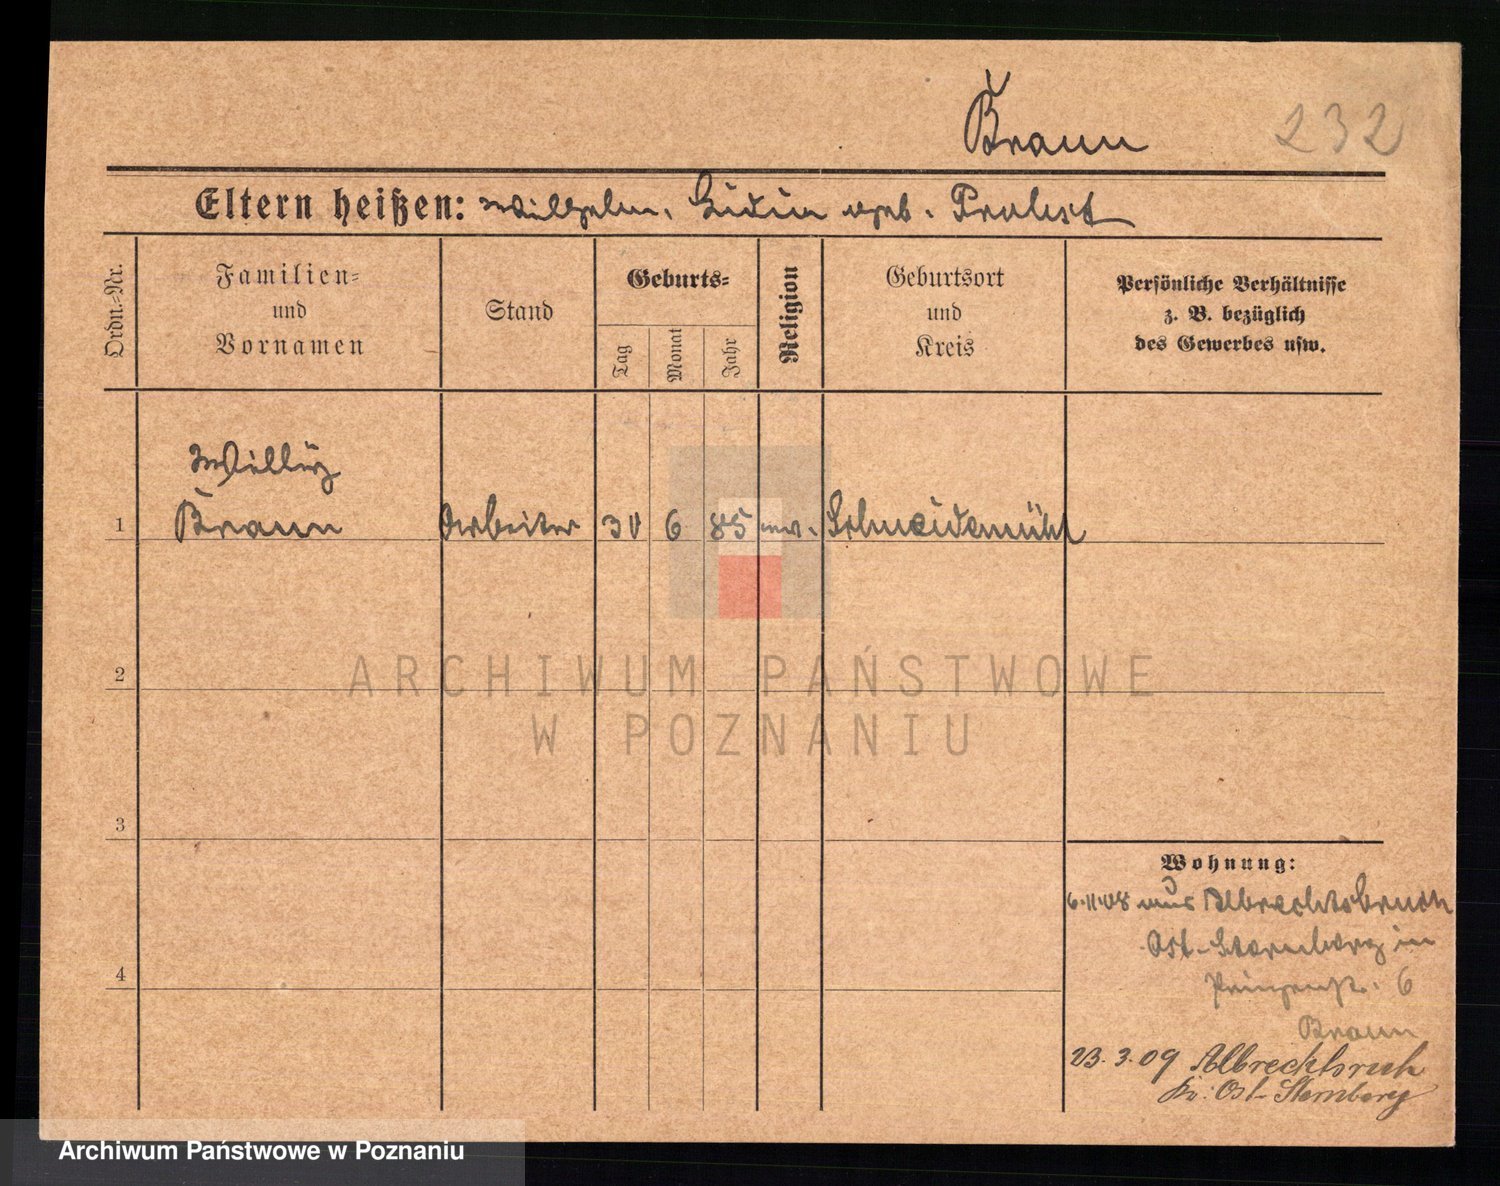 Braun
232
Eltern heißen: Wilhelm, geb. Probst
Ordn.=Nr.
Familien=
und
Vornamen
Stand
Geburts=
Tag
Monat
Jahr
Religion
Geburtsort
und
Kreis
Persönliche Verhältnisse
z. B. bezüglich
des Gewerbes usw.
1
Braun
Arbeiter
30
6
85
ev.
Schneidemühl
2
ARCHIWUM PAŃSTWOWE
W POZNANIU
3
Wohnung:
6.11.08 aus Albrechtsbruch
Ost-Sternberg in
Prinzenstr. 6
4
Braun
23.3.09 Albrechtsbruch
Kr. Ost-Sternberg
Archiwum Państwowe w Poznaniu